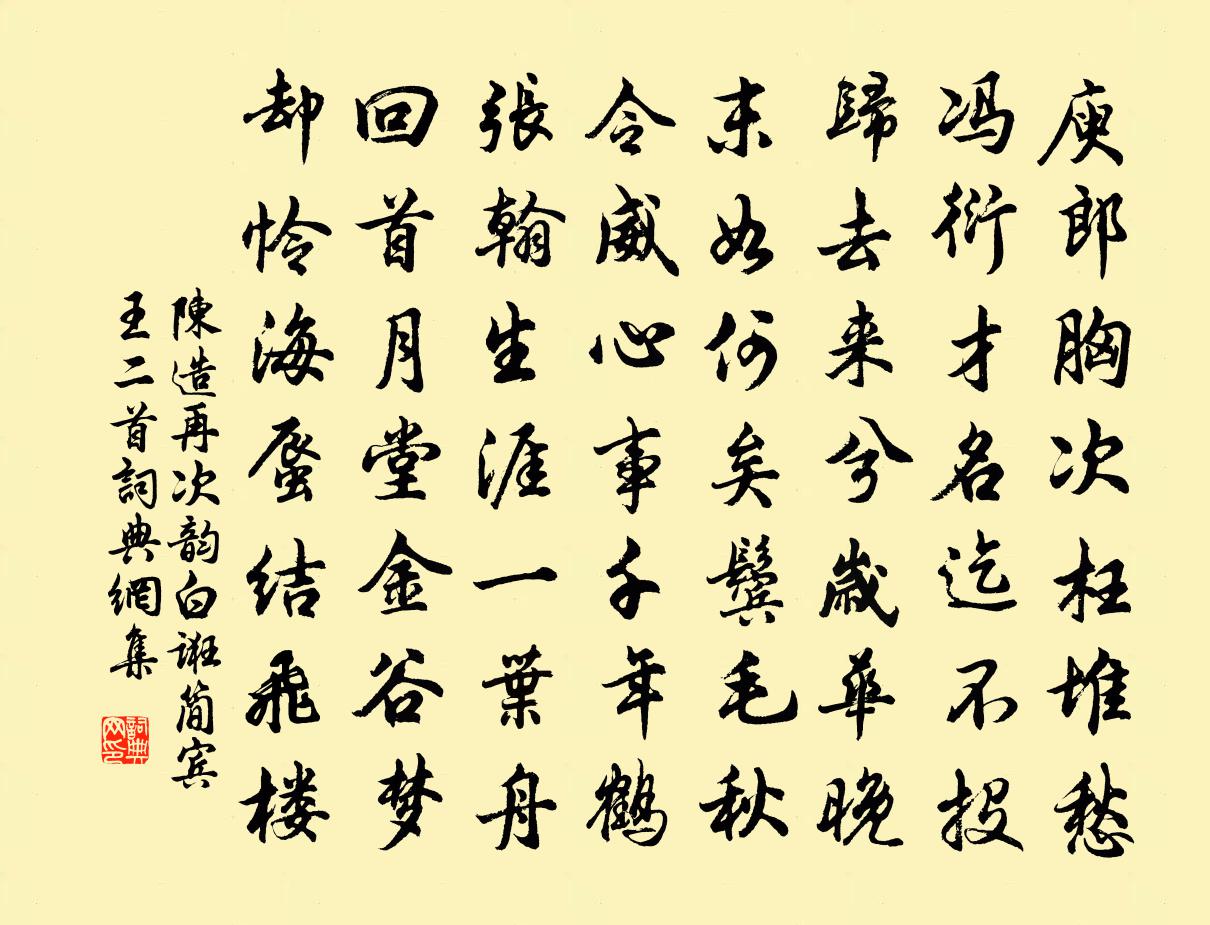 庾郎胸次枉堆愁
冯衍才名迄不投
歸去来兮歲華晚
末如何矣鬓毛秋
令威心事千年鶴
張翰生涯一葉舟
回首月堂金谷梦
却怜海蜃结飛楼
陳造再次韵白誑簡宾
王二首詞典網集
詞典网印